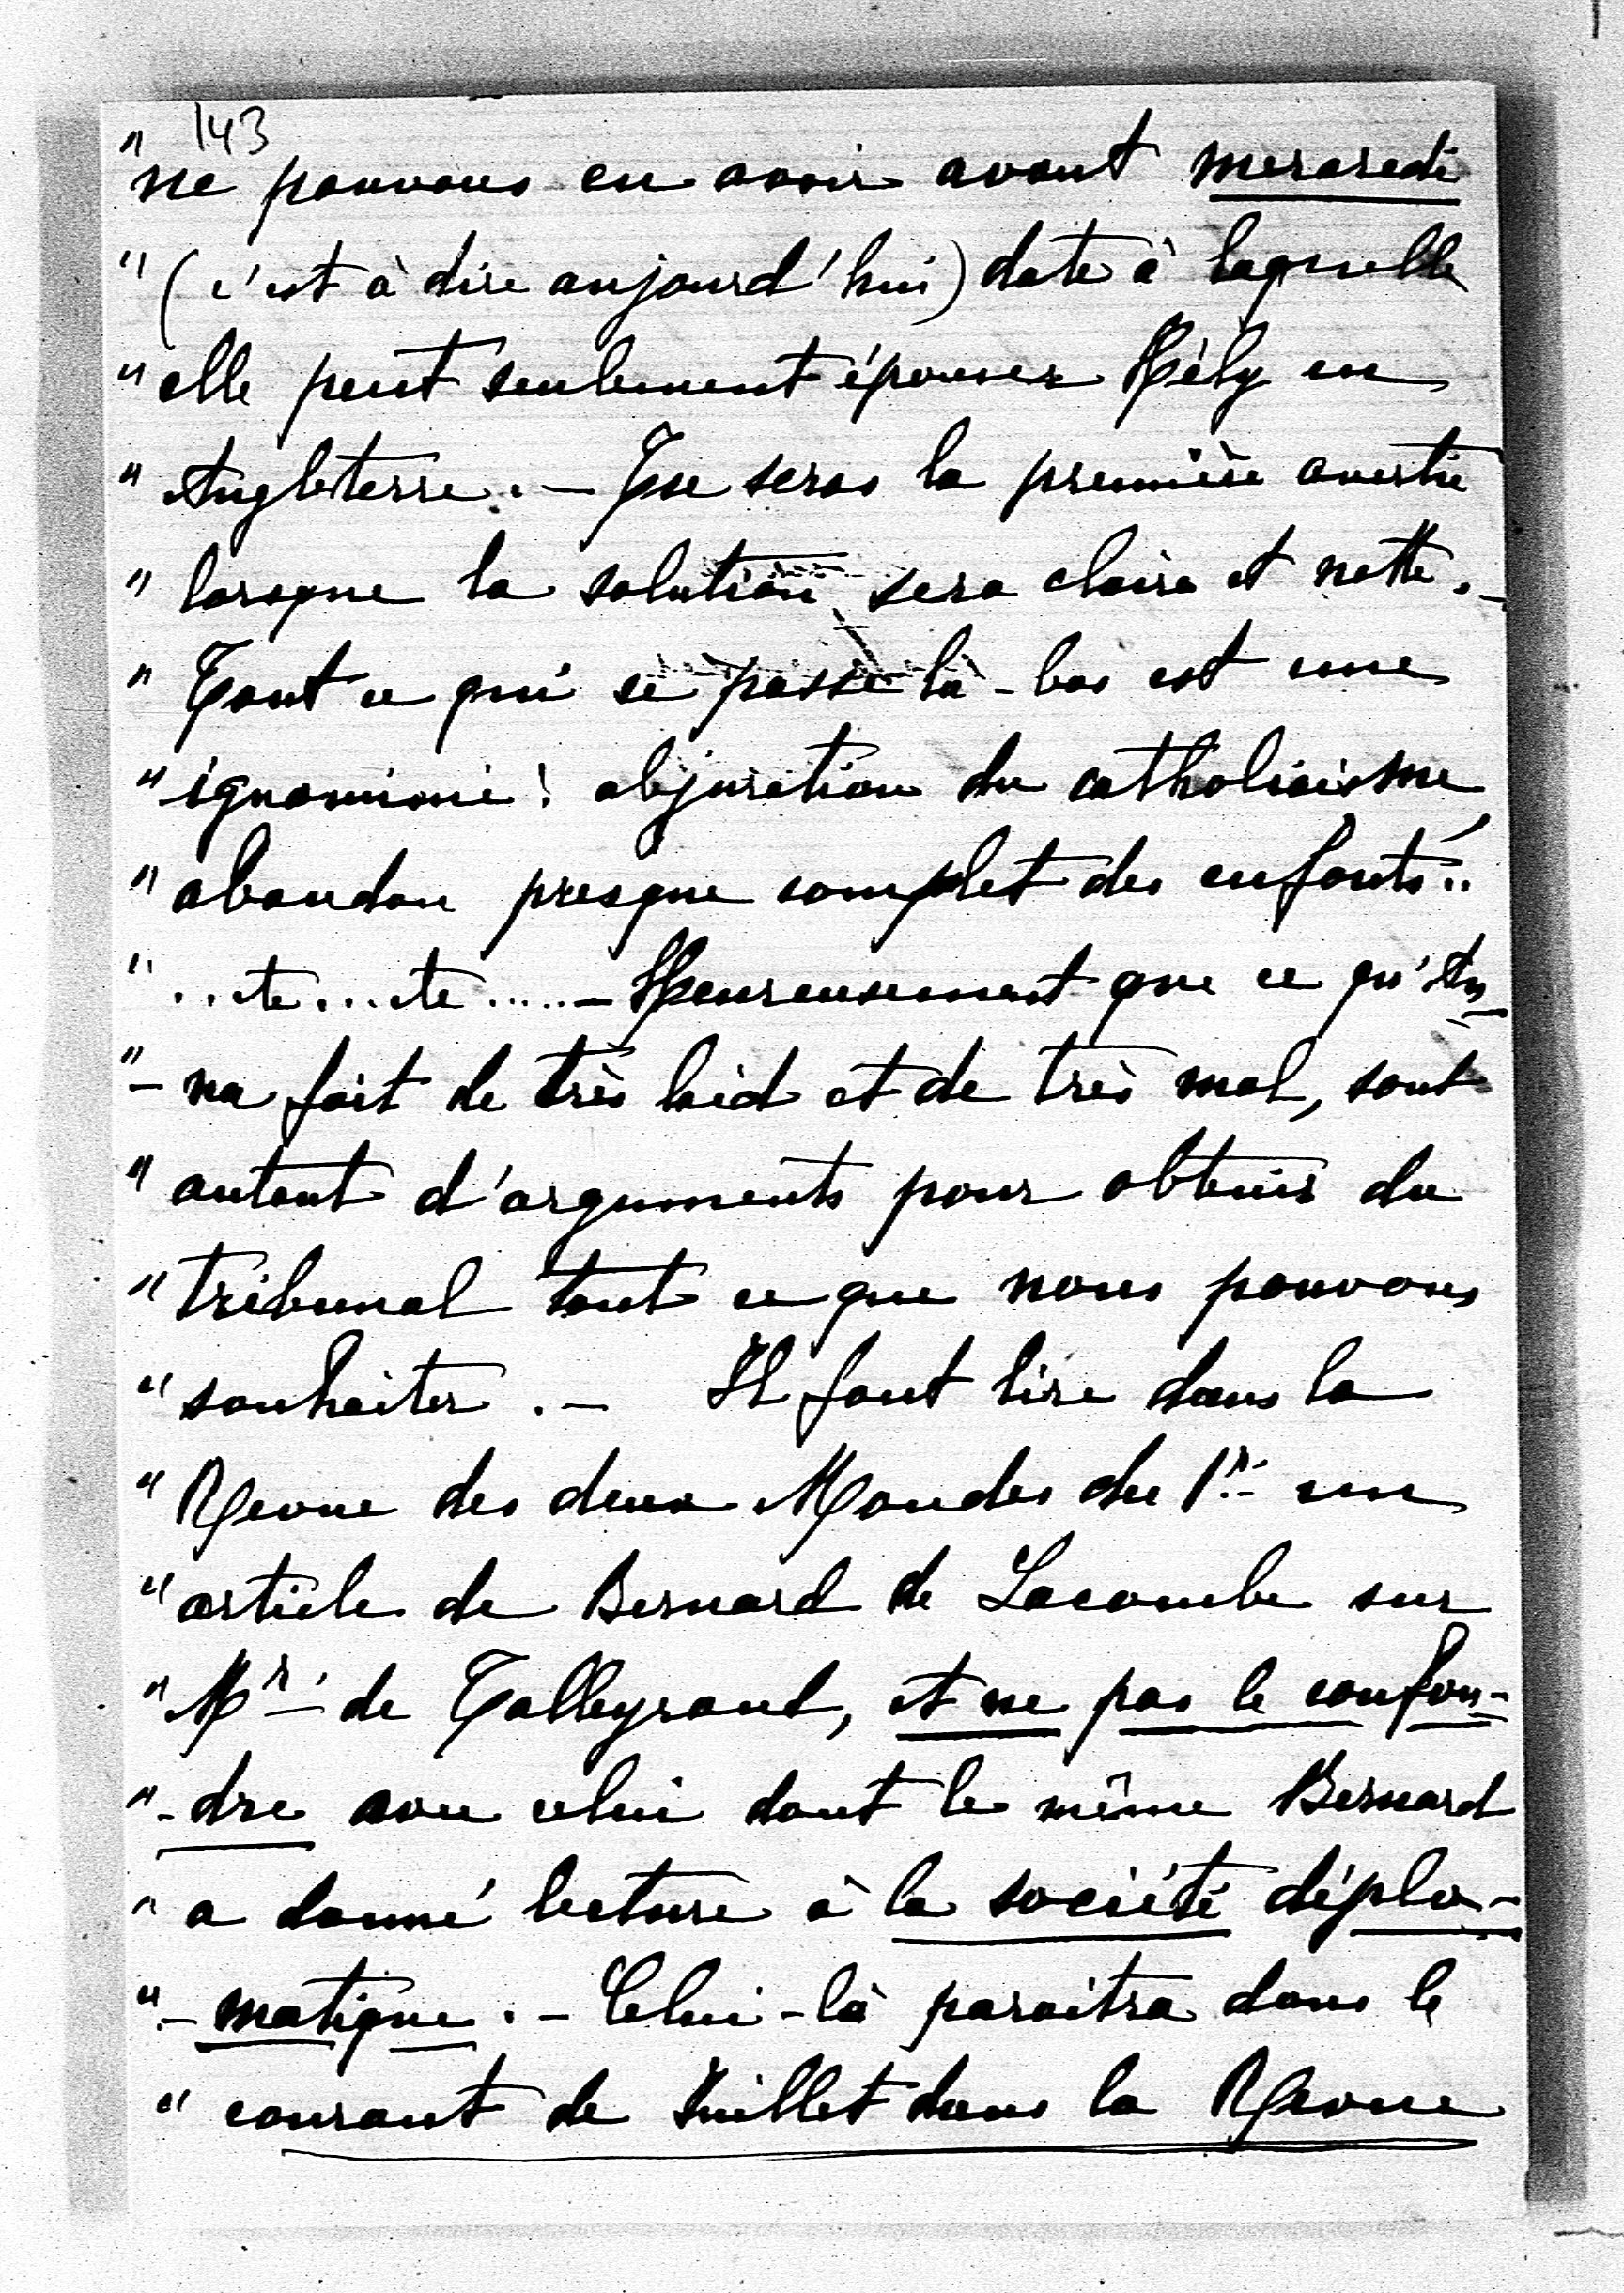 143
" ne pouvons en avoir avant mercredi
" (c'est à dire aujourd'hui) date à laquelle
" elle peut seulement épouser Hély en
" Angleterre. – Tu seras la première avertie
" lorsque la solution sera claire et nette. –
" Tout ce qui se passe là-bas est une
" ignominie! abjuration du catholicisme,
" abandon presque complet des enfants..
" ..etc...etc.....– Heureusement que ce qu'An
" - na fait de très laid et de très mal, sont
" autant d'arguments pour obtenir du
" tribunal tout ce que nous pouvons
" souhaiter. – Il faut lire dans la
" Revue des deux Mondes du 1er un
" article de Bernard de Lacombe sur
" Mr de Talleyrand, et ne pas le confon-
" -dre avec celui dont le même Bernard
" a donné lecture à la société diplo-
" -matique. – Celui-là paraitra dans le
" courant de Juillet dans la Revue